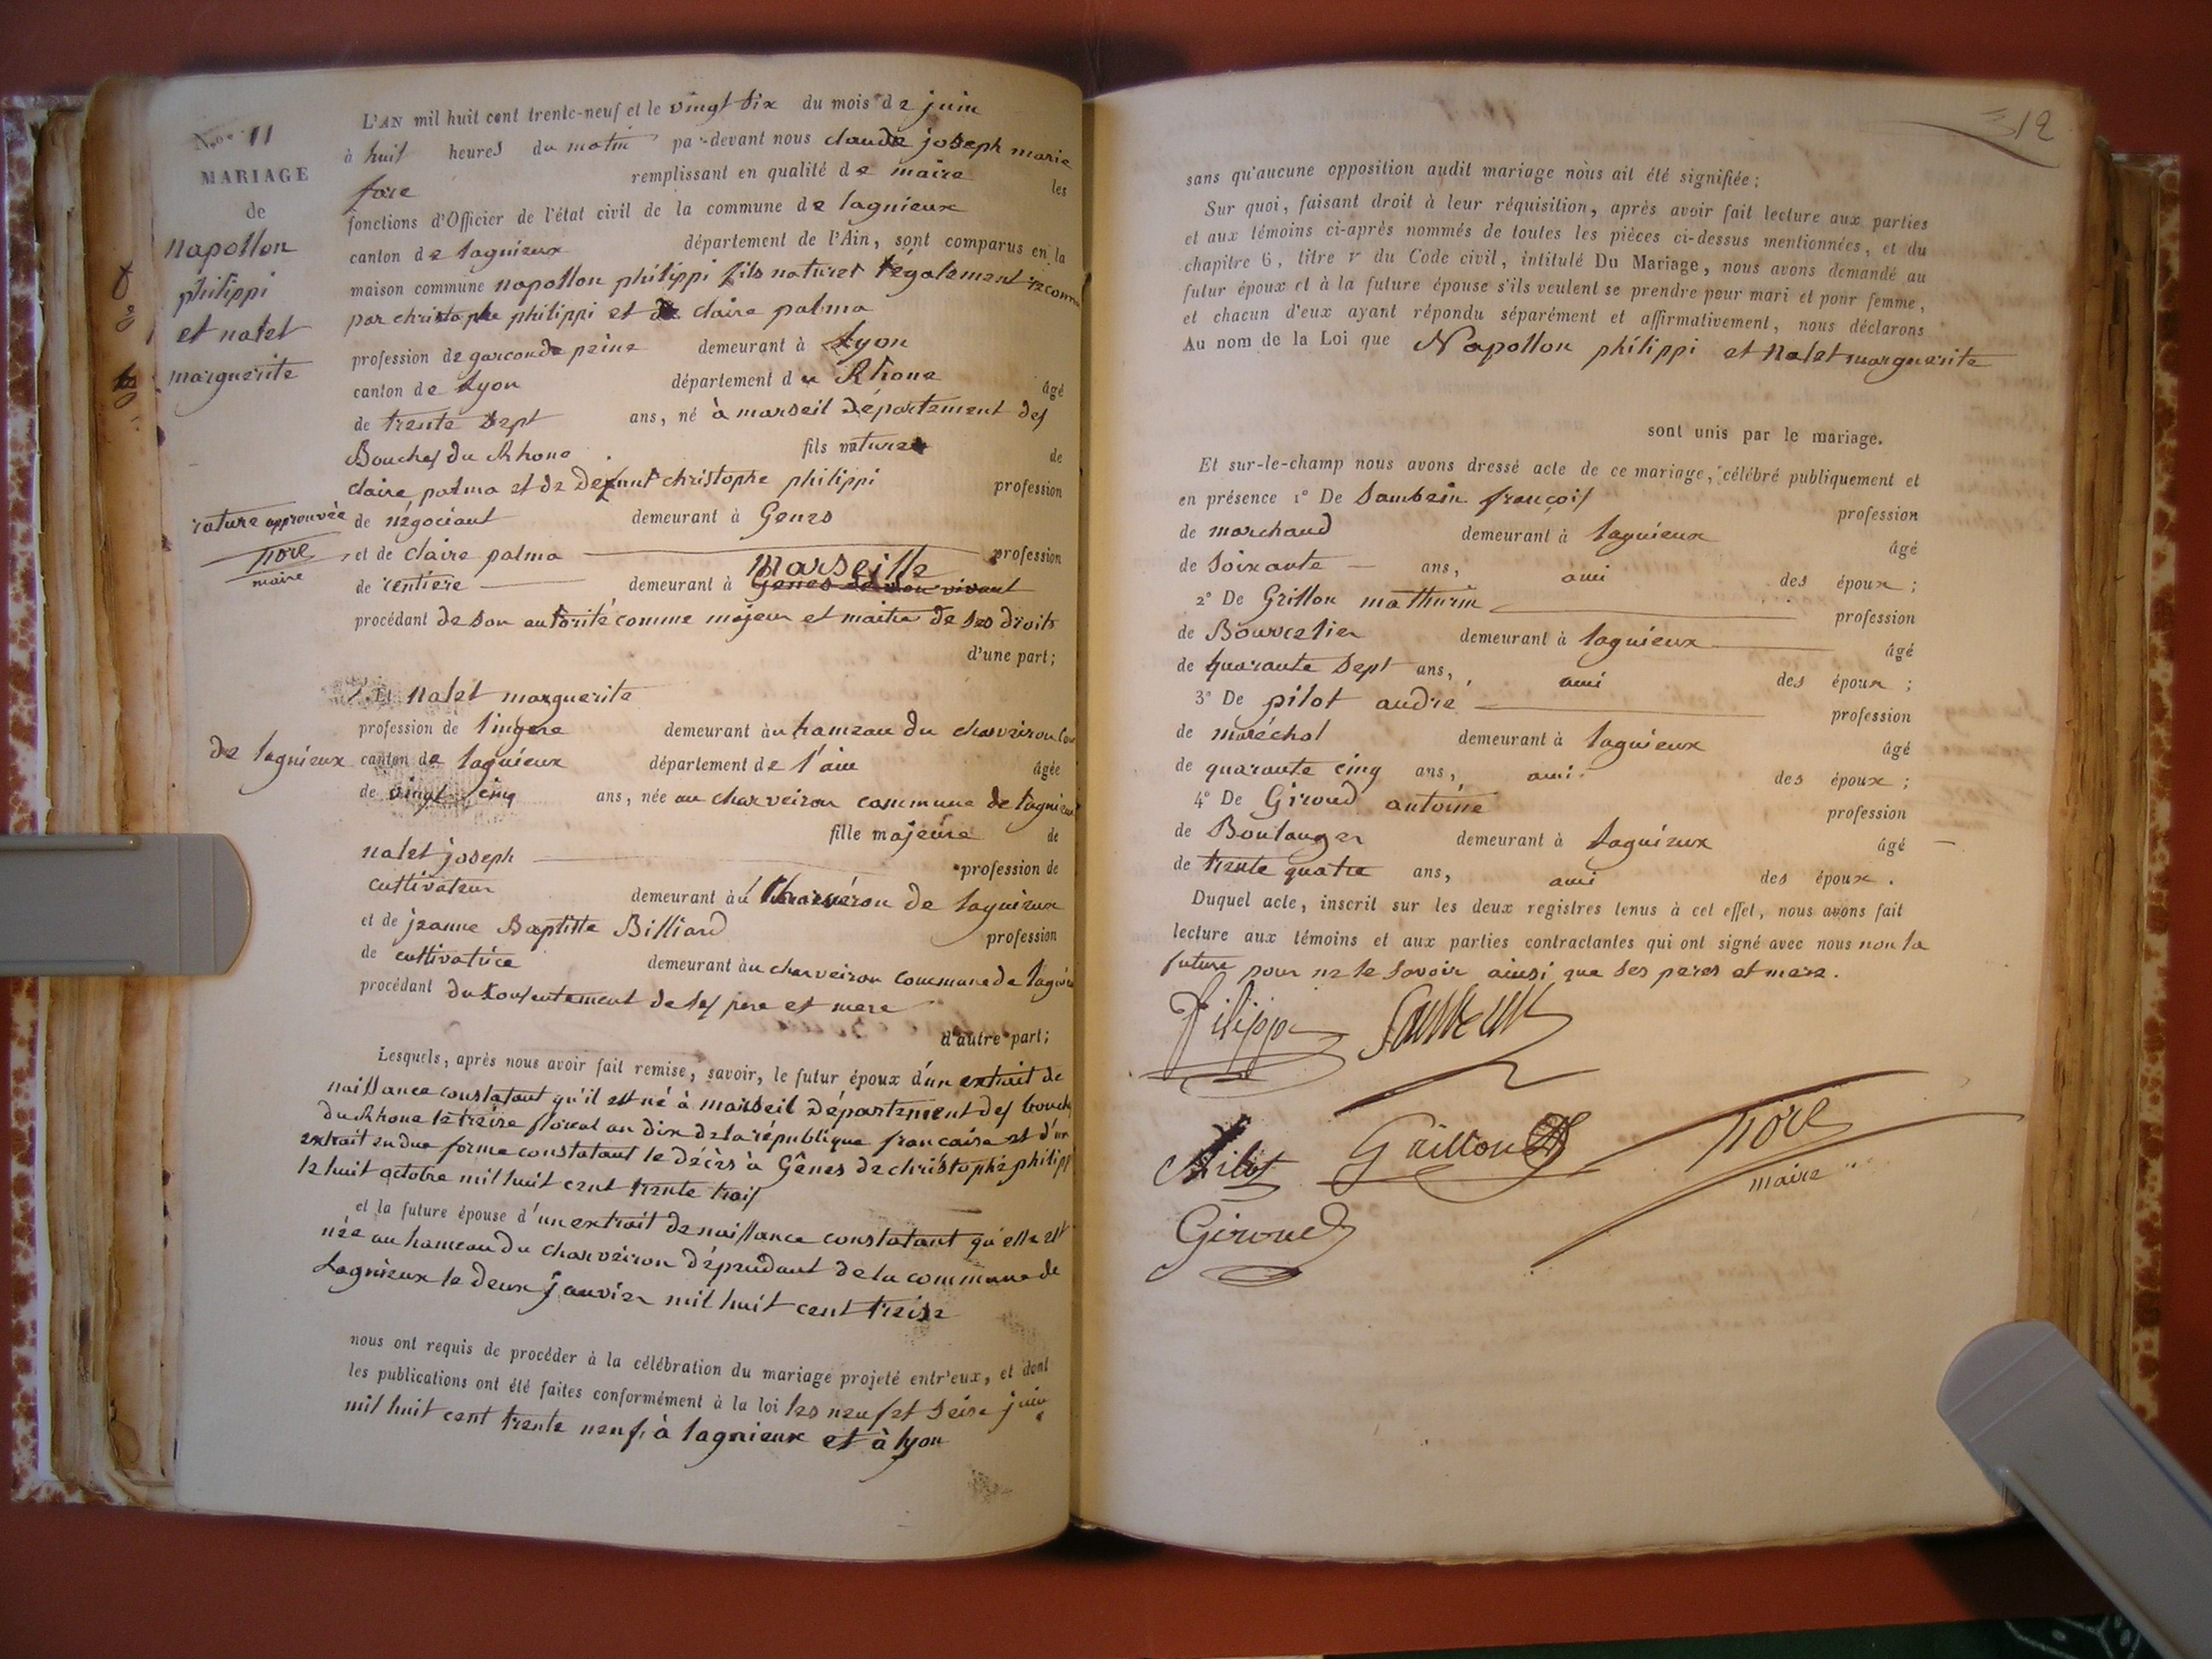 N.o 11
MARIAGE
de
napollon
philippi
et nalet
marguerite
L'AN mil huit cent trente-neuf et le vingt six du mois de juin
à huit heures du matin par-devant nous claude joseph marie
remplissant en qualité de maire les
fonctions d'Officier de l'état civil de la commune de lagnieux
canton de lagnieux département de l'Ain, sont comparus en la
maison commune napollon philippi fils naturel légalement reconnu
par christophe philippi et de claire palma
profession de garcon de peine demeurant à Lyon
canton de Lyon département du Rhone âgé
de trente sept ans, né à marseil département des
Bouches du Rhone fils naturel de
claire palma et de defunt christophe philippi profession
rature approuvée
maire
de négociant demeurant à Genes
et de claire palma profession
de rentiere demeurant à marseille
Genes de son vivant
procédant de son autorité comme majeur et maitre de ses droits
d'une part;
Et nalet marguerite
profession de lingere demeurant au hameau du charveiron
de lagnieux canton de lagnieux département de l'ain âgée
de vingt cinq ans, née au charveiron commune de lagnieux
fille majeure de
nalet joseph profession de
cultivateur demeurant au Charvéron de lagnieux
et de jeanne Baptiste Billiard profession
de cultivatrice demeurant au charveiron commune de lagnieu
procédant du consentement de ses pere et mere
d'autre part;
Lesquels, après nous avoir fait remise, savoir, le futur époux d'un extrait de
naissance constatant qu'il est né à marseil département des bouch
du Rhone le treise floreal an dix de la république francaise et d'un
extrait en due forme constatant le décès à Gênes de christophe philipp
le huit octobre mil huit cent trente trois
et la future épouse d'un extrait de naissance constatant qu'elle est
née au hameau du charveiron dépendant de la commune de
Lagnieux le deux janvier mil huit cent treise
nous ont requis de procéder à la célébration du mariage projeté entr'eux, et dont
les publications ont été faites conformément à la loi les neuf et seise juin
mil huit cent trente neuf, à lagnieux et à lyon
12
sans qu'aucune opposition audit mariage nous ait été signifiée;
Sur quoi, faisant droit à leur réquisition, après avoir fait lecture aux parties
et aux témoins ci-après nommés de toutes les pièces ci-dessus mentionnées, et du
chapitre 6, titre v du Code civil, intitulé Du Mariage, nous avons demandé au
futur époux et à la future épouse s'ils veulent se prendre pour mari et pour femme,
et chacun d'eux ayant répondu séparément et affirmativement, nous déclarons
Au nom de la Loi que Napollon philippi et Nalet marguerite
sont unis par le mariage.
Et sur-le-champ nous avons dressé acte de ce mariage, célébré publiquement et
en présence 1° De Sambein françois profession
de marchand demeurant à lagnieux âgé
de soixante ans, ami des époux;
2° De Grillon mathurin profession
de Bourrelier demeurant à lagnieux âgé
de quarante sept ans, ami des époux;
3° De pilot andré profession
de maréchal demeurant à lagnieux âgé
de quarante cinq ans, ami des époux;
4° De Giroud antoine profession
de Boulanger demeurant à lagnieux âgé
de trente quatre ans, ami des époux.
Duquel acte, inscrit sur les deux registres tenus à cet effet, nous avons fait
lecture aux témoins et aux parties contractantes qui ont signé avec nous non la
future pour ne le savoir ainsi que ses peres et mere.
Pilot Grillon
maire
Giroud